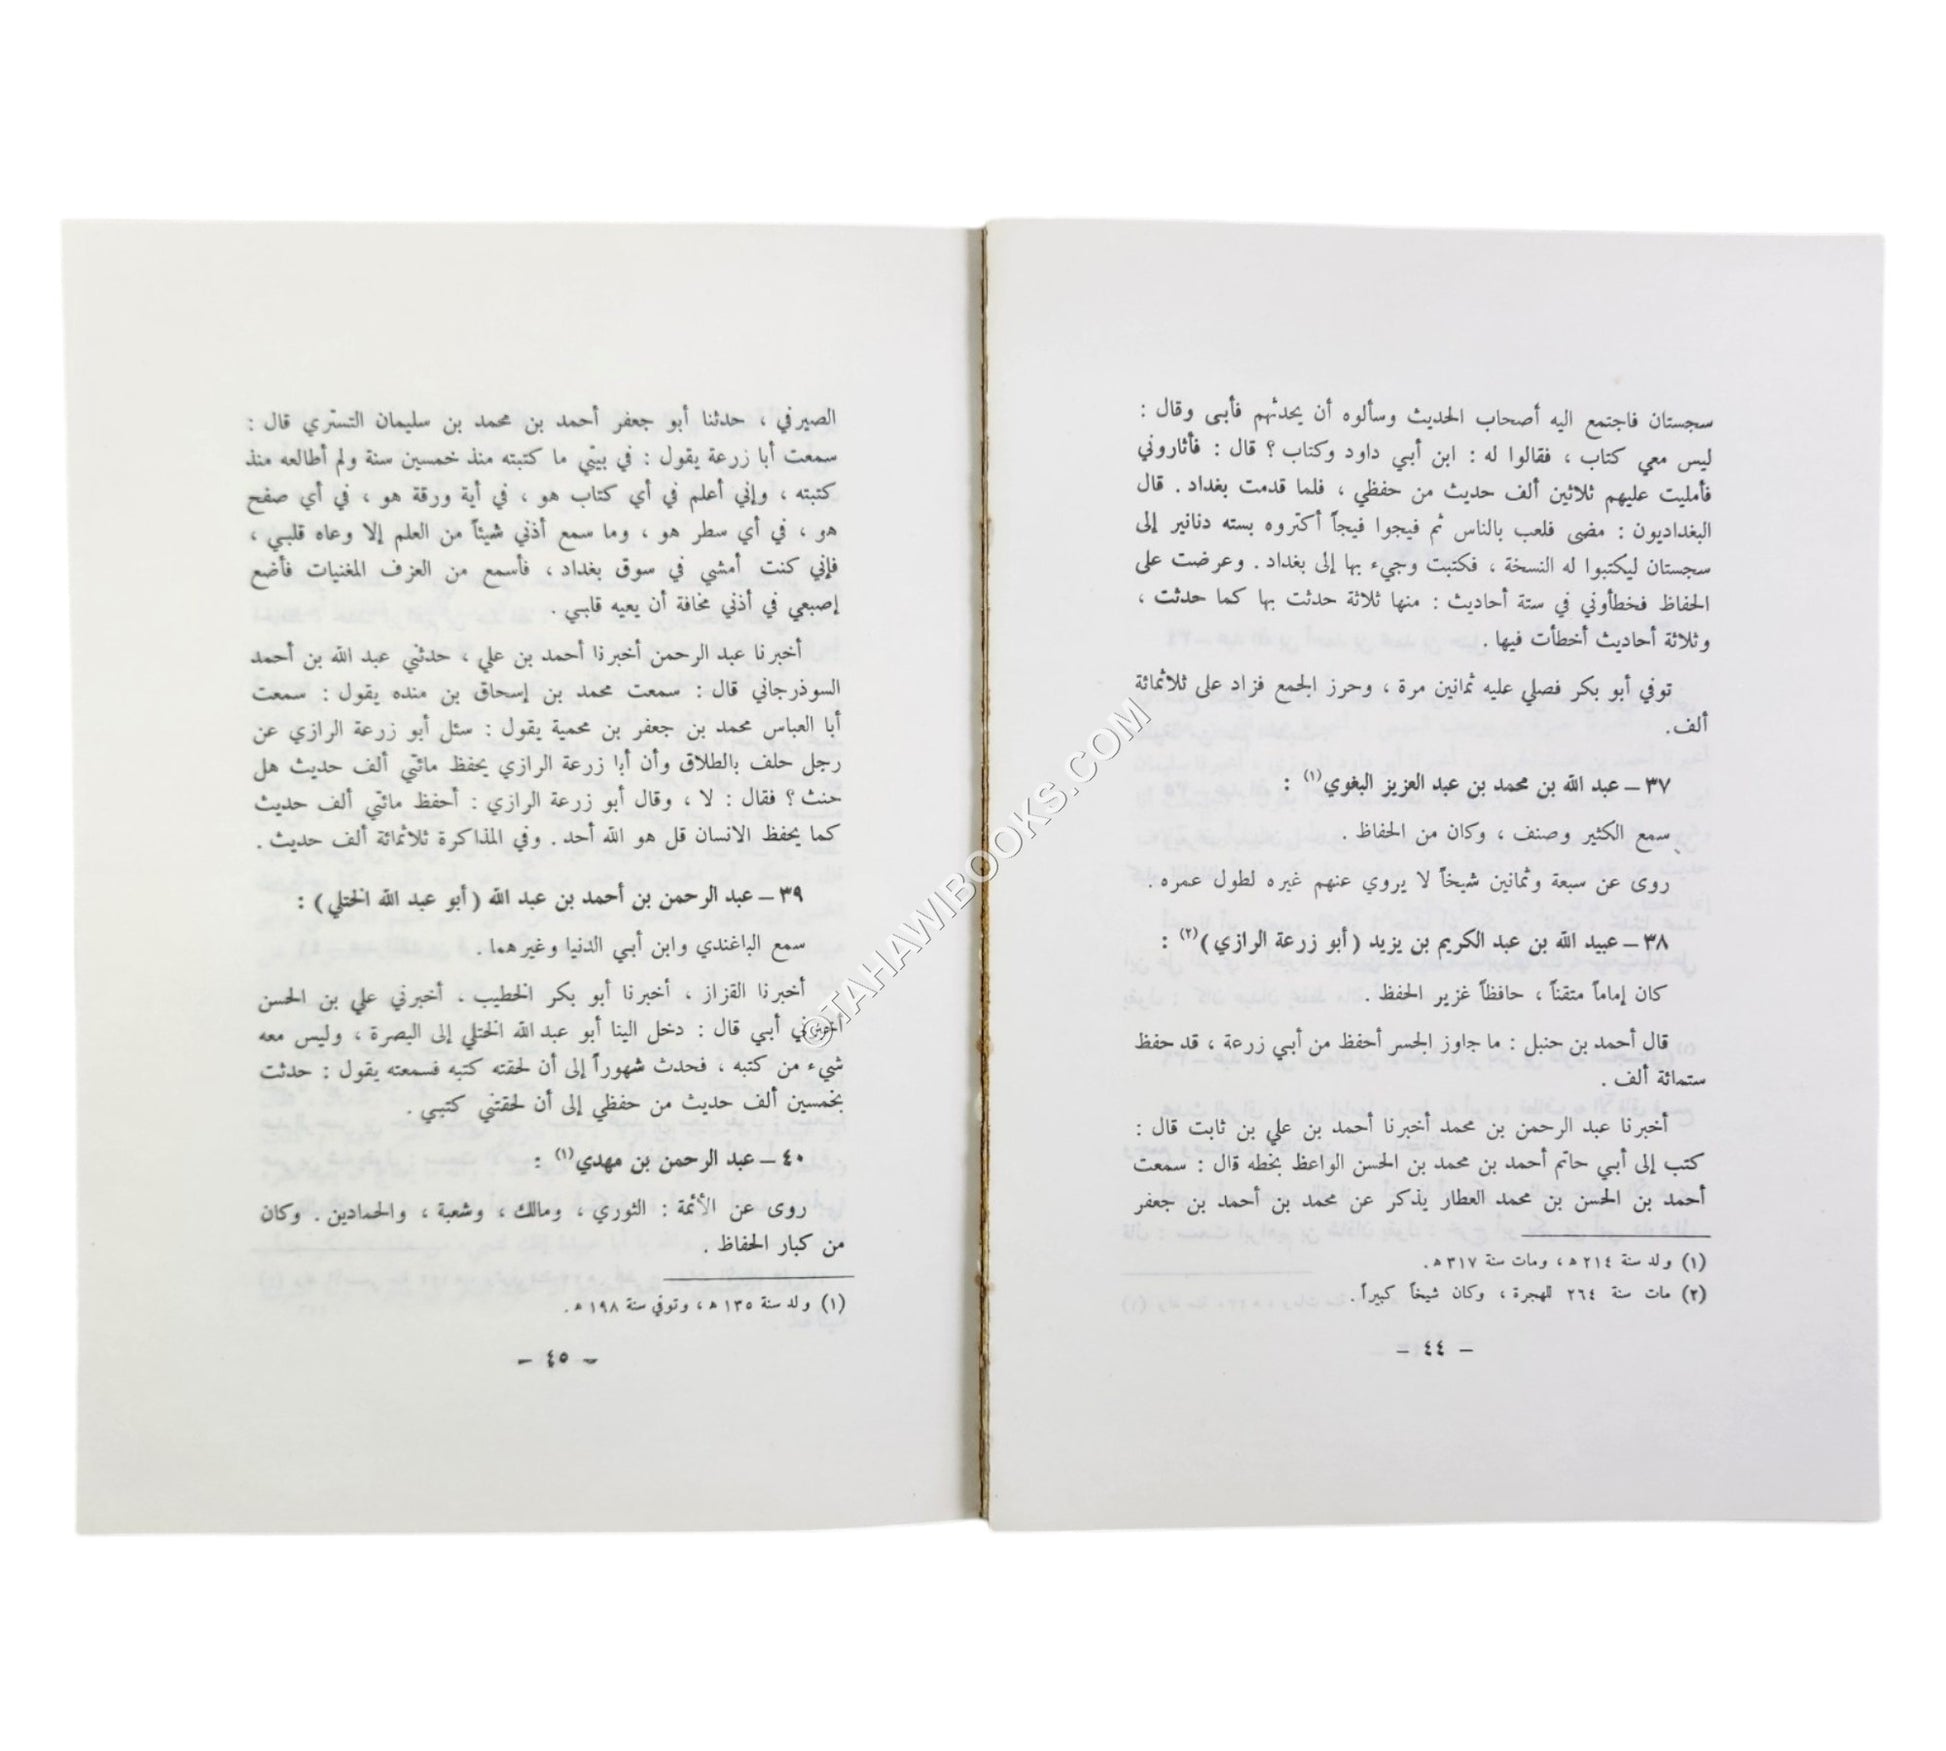 سجستان فاجتمع اليه أصحاب الحديث وسألوه أن يحدثهم فأبى وقال :
ليس معي كتاب ، فقالوا له : ابن أبي داود وكتاب ؟ قال : فأثاروني
فأمليت عليهم ثلاثين ألف حديث من حفظي ، فلما قدمت بغداد . قال
البغداديون : مضى فلعب بالناس ثم فيجوا فيجاً أكتروه بسته دنانير إلى
سجستان ليكتبوا له النسخة ، فكتبت وجيء بها إلى بغداد . وعرضت على
الحفاظ فخطأوني في ستة أحاديث : منها ثلاثة حدثت بها كما حدثت ،
وثلاثة أحاديث أخطأت فيها .
توفي أبو بكر فصلي عليه ثمانين مرة ، وحرز الجمع فزاد على ثلاثمائة
ألف.
٣٧ – عبد الله بن محمد بن عبد العزيز البغوي(١) :
سمع الكثير وصنف ، وكان من الحفاظ .
روى عن سبعة وثمانين شيخاً لا يروي عنهم غيره لطول عمره .
٣٨ – عبيد الله بن عبد الكريم بن يزيد ( أبو زرعة الرازي )(٢) :
كان إماماً متقناً ، حافظاً غزير الحفظ .
قال أحمد بن حنبل : ما جاوز الجسر أحفظ من أبي زرعة ، قد حفظ
ستمائة ألف .
أخبرنا عبد الرحمن بن محمد أخبرنا أحمد بن علي بن ثابت قال :
كتب إلى أبي حاتم أحمد بن محمد بن الحسن الواعظ بخطه قال : سمعت
أحمد بن الحسن بن محمد العطار يذكر عن محمد بن أحمد بن جعفر
(١) ولد سنة ٢١٤ ه ، ومات سنة ٣١٧ ه .
(٢) مات سنة ٢٦٤ للهجرة ، وكان شيخاً كبيراً .
– ٤٤ –
الصيرفي ، حدثنا أبو جعفر أحمد بن محمد بن سليمان التستري قال :
سمعت أبا زرعة يقول : في بيتي ما كتبته منذ خمسين سنة ولم أطالعه منذ
كتبته ، وإني أعلم في أي كتاب هو ، في أية ورقة هو ، في أي صفح
هو ، في أي سطر هو ، وما سمع أذني شيئاً من العلم إلا وعاه قلبي ،
فإني كنت أمشي في سوق بغداد ، فأسمع من العزف المغنيات فأضع
إصبعي في أذني مخافة أن يعيه قلبي .
أخبرنا عبد الرحمن أخبرنا أحمد بن علي ، حدثني عبد الله بن أحمد
السوذرجاني قال : سمعت محمد بن إسحاق بن منده يقول : سمعت
أبا العباس محمد بن جعفر بن محمية يقول : سئل أبو زرعة الرازي عن
رجل حلف بالطلاق وأن أبا زرعة الرازي يحفظ مائتي ألف حديث هل
حنث ؟ فقال : لا ، وقال أبو زرعة الرازي : أحفظ مائتي ألف حديث
كما يحفظ الانسان قل هو الله أحد . وفي المذاكرة ثلاثمائة ألف حديث .
٣٩ – عبد الرحمن بن أحمد بن عبد الله ( أبو عبد الله الختلي ) :
سمع الباغندي وابن أبي الدنيا وغيرهما .
أخبرنا القزاز ، أخبرنا أبو بكر الخطيب . أخبرني علي بن الحسن
أخبرني أبي قال : دخل الينا أبو عبد الله الختلي إلى البصرة ، وليس معه
شيء من كتبه ، فحدث شهوراً إلى أن لحقته كتبه فسمعته يقول : حدثت
بخمسين ألف حديث من حفظي إلى أن لحقتني كتبي .
٤٠ – عبد الرحمن بن مهدي(١) :
روى عن الأئمة : الثوري ، ومالك ، وشعبة ، والحمادين . وكان
من كبار الحفاظ .
(١) ولد سنة ١٣٥ ه ، وتوفي سنة ١٩٨ ه .
– ٤٥ –
©TAHAWIBOOKS.COM